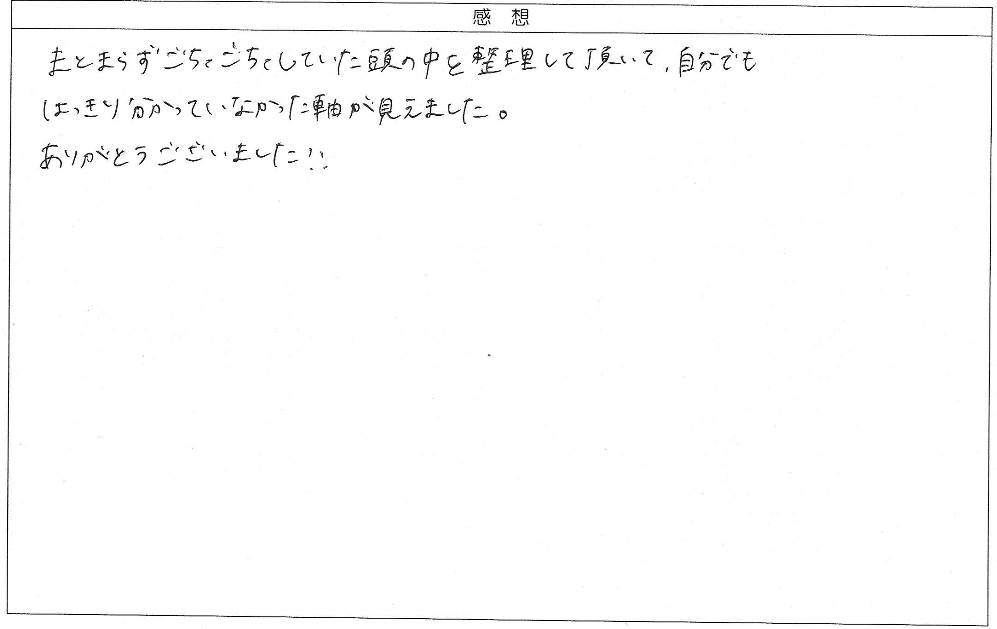 感 想
まとまらずごちゃごちゃしていた頭の中を整理して頂いて、自分でも
はっきり分かっていなかった軸が見えました。
ありがとうございました!!